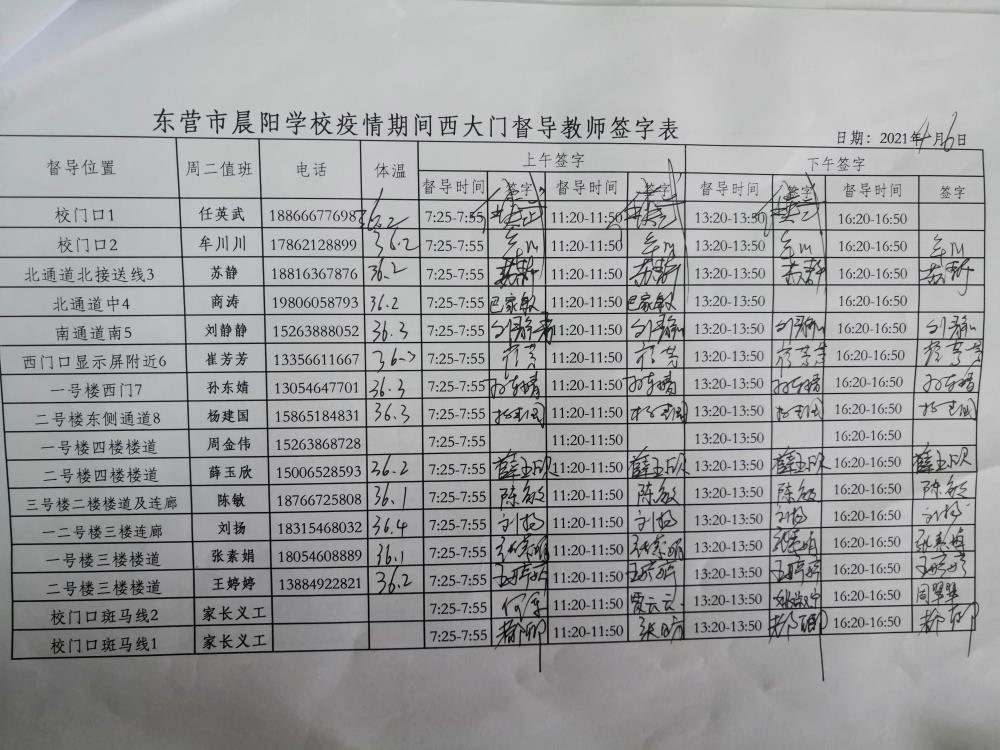 东营市晨阳学校疫情期间西大门督导教师签字表
日期：2021年4月6日
督导位置 周二值班 电话 体温 上午签字 下午签字
督导时间 签字 督导时间 签字 督导时间 签字 督导时间 签字
校门口1 任英武 18866677698 36.2 7:25-7:55 11:20-11:50 13:20-13:50 16:20-16:50
校门口2 牟川川 17862128899 36.2 7:25-7:55 牟川 11:20-11:50 牟川 13:20-13:50 牟川 16:20-16:50 牟川
北通道北接送线3 苏静 18816367876 36.2 7:25-7:55 苏静 11:20-11:50 苏静 13:20-13:50 苏静 16:20-16:50 苏静
北通道中4 商涛 19806058793 36.2 7:25-7:55 巴家敏 11:20-11:50 巴家敏 13:20-13:50 16:20-16:50
南通道南5 刘静静 15263888052 36.3 7:25-7:55 刘静静 11:20-11:50 刘静 13:20-13:50 刘静 16:20-16:50 刘静
西门口显示屏附近6 崔芳芳 13356611667 7:25-7:55 崔芳 11:20-11:50 崔芳 13:20-13:50 崔芳芳 16:20-16:50 崔芳芳
一号楼西门7 孙东婧 13054647701 36.3 7:25-7:55 孙东婧 11:20-11:50 孙东婧 13:20-13:50 孙东婧 16:20-16:50 孙东婧
二号楼东侧通道8 杨建国 15865184831 36.3 7:25-7:55 杨建国 11:20-11:50 杨建国 13:20-13:50 杨建国 16:20-16:50 杨建国
一号楼四楼楼道 周金伟 15263868728 7:25-7:55 11:20-11:50 13:20-13:50 16:20-16:50
二号楼四楼楼道 薛玉欣 15006528593 36.2 7:25-7:55 薛玉欣 11:20-11:50 薛玉欣 13:20-13:50 薛玉欣 16:20-16:50 薛玉欣
三号楼二楼楼道及连廊 陈敏 18766725808 36.1 7:25-7:55 陈敏 11:20-11:50 陈敏 13:20-13:50 陈敏 16:20-16:50 陈敏
一二号楼三楼连廊 刘扬 18315468032 36.4 7:25-7:55 刘扬 11:20-11:50 刘扬 13:20-13:50 刘扬 16:20-16:50 刘扬
一号楼三楼楼道 张素娟 18054608889 36.1 7:25-7:55 张素娟 11:20-11:50 张素娟 13:20-13:50 张素娟 16:20-16:50 张素娟
二号楼三楼楼道 王婷婷 13884922821 36.2 7:25-7:55 王婷婷 11:20-11:50 王婷婷 13:20-13:50 王婷婷 16:20-16:50 王婷婷
校门口斑马线2 家长义工 7:25-7:55 何军 11:20-11:50 贾云云 13:20-13:50 16:20-16:50 周翠翠
校门口斑马线1 家长义工 7:25-7:55 11:20-11:50 13:20-13:50 16:20-16:50